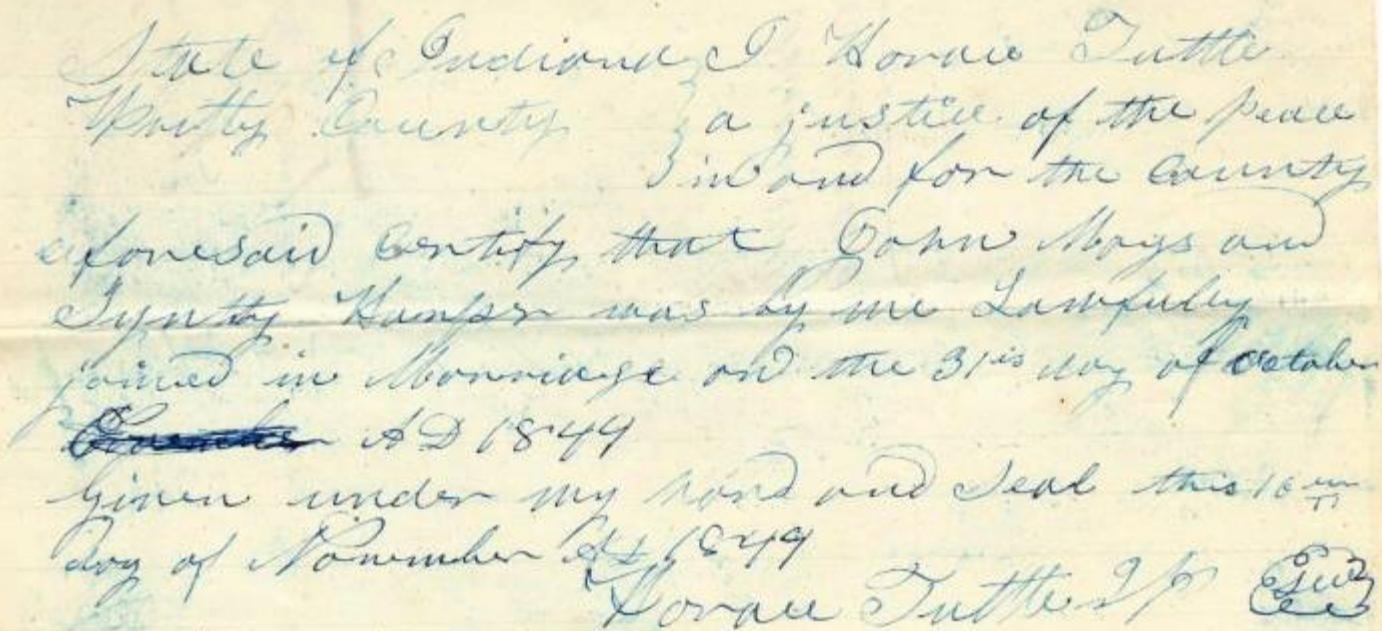 State of Indiana } I Horace Tuttle
County } a justice of the peace
} in and for the County
aforesaid Certify that John Mays and
was by me Lawfully
joined in Marriage on the 31 day of October
AD 1849
Given under my hand and Seal this
day of November AD 1849
Horace Tuttle JP